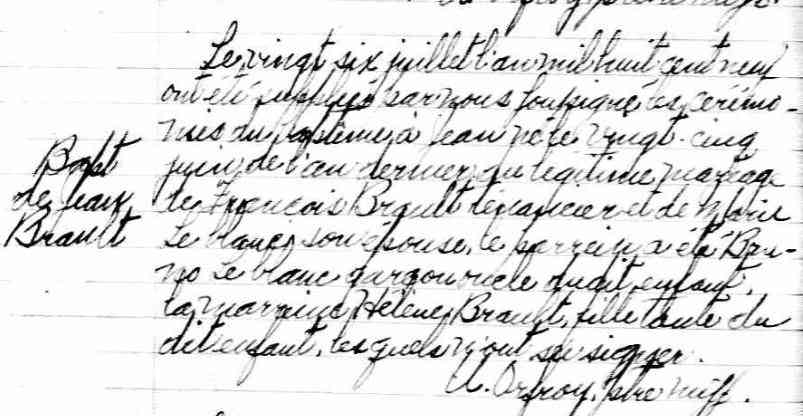 Le vingt six juillet l'an mil huit cent neuf
ont été suppléé par nous soussigné les cérémo-
nies du baptême à jean né le vingt-cinq
juin de l'an dernier du légitime mariage
Bapt
de jean
Brault
de François Brault tenancier et de Marie
Le blanc son épouse, le parrein a été Bru-
no Le blanc garçon oncle dudit enfant,
la marraine Hélene Brault, fille tante du
dit enfant, lesquels n'ont su signer.
U. Orfroy, ptre miss.